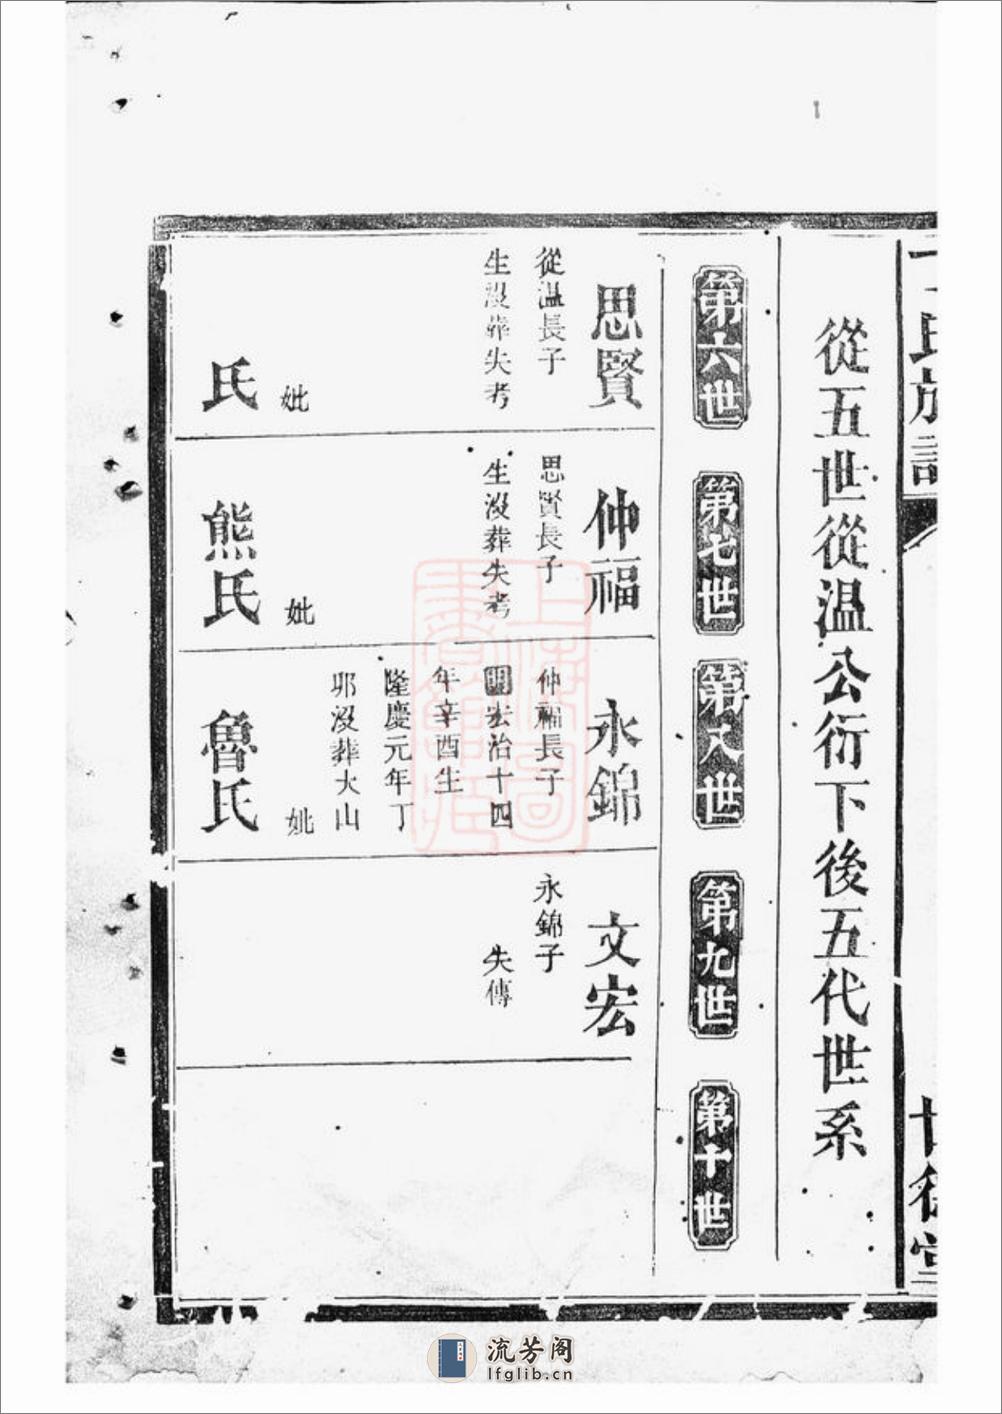 從五世從温公衍下後五代世系
第六世
第七世
第八世
第九世
第十世
思賢
從温長子
生沒葬失考
妣
氏
仲福
思賢長子
生沒葬失考
妣
熊氏
永錦
仲福長子
明宏治十四
年辛酉生
隆慶元年丁
夘沒葬大山
妣
魯氏
文宏
永錦子
失傳
流芳阁
lfglib.cn